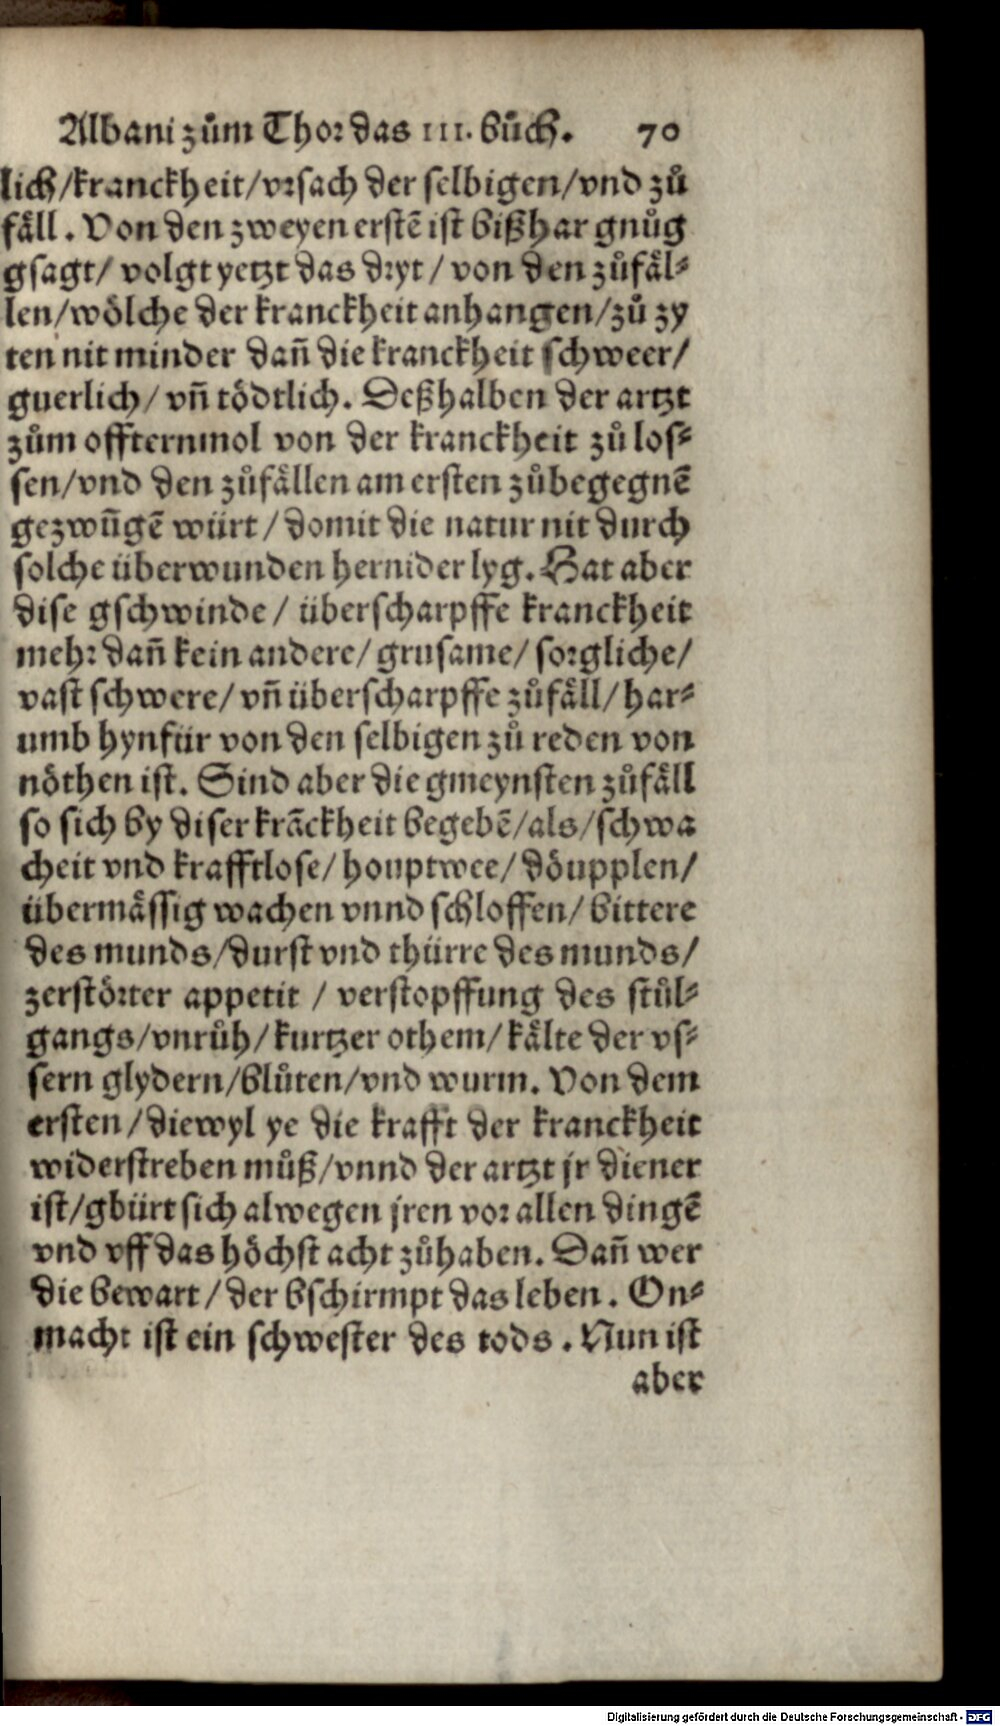 Albani zům Thor das III. bůch. 70
lich/kranckheit/vrsach der selbigen/vnd zů
fäll. Von den zweyen erstē ist bißhar gnůg
gsagt/ volgt yetzt das dryt/ von den zůfäl⸗
len/wölche der kranckheit anhangen/zů zy
ten nit minder dañ die kranckheit schweer/
guerlich/ vñ tödtlich. Deßhalben der artzt
zům offternmol von der kranckheit zů los⸗
sen/vnd den zůfällen am ersten zůbegegnē
gezwūgē würt/domit die natur nit durch
solche überwunden hernider lyg. Hat aber
dise gschwinde/ überscharpffe kranckheit
mehr dañ kein andere/grusame/sorgliche/
vast schwere/vñ überscharpffe zůfäll/har⸗
umb hynfür von den selbigen zů reden von
nöthen ist. Sind aber die gmeynsten zůfäll
so sich by diser krāckheit begebē/als/schwa
cheit vnd krafftlose/houptwee/döupplen/
übermässig wachen vnnd schloffen/bittere
des munds/durst vnd thürre des munds/
zerstörter appetit / verstopffung des stůl⸗
gangs/vnrůh/kurtzer othem/kälte der vs⸗
sern glydern/blůten/vnd wurm. Von dem
ersten/diewyl ye die krafft der kranckheit
widerstreben můß/vnnd der artzt jr diener
ist/gbürt sich alwegen jren vor allen dingē
vnd vff das höchst acht zůhaben. Dañ wer
die bewart/der bschirmpt das leben. On⸗
macht ist ein schwester des tods. Nun ist
aber
Digitalisierung gefördert durch die Deutsche Forschungsgemeinschaft - DFG